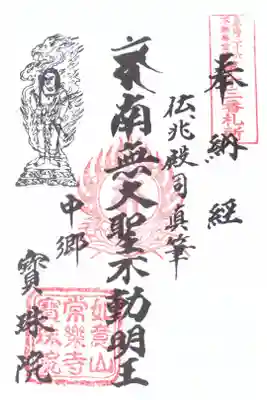 奉納経
三番札所
伝兆殿司眞筆
南無大聖不動明王
中郷
寳珠院
如意山
常樂寺
寳珠院